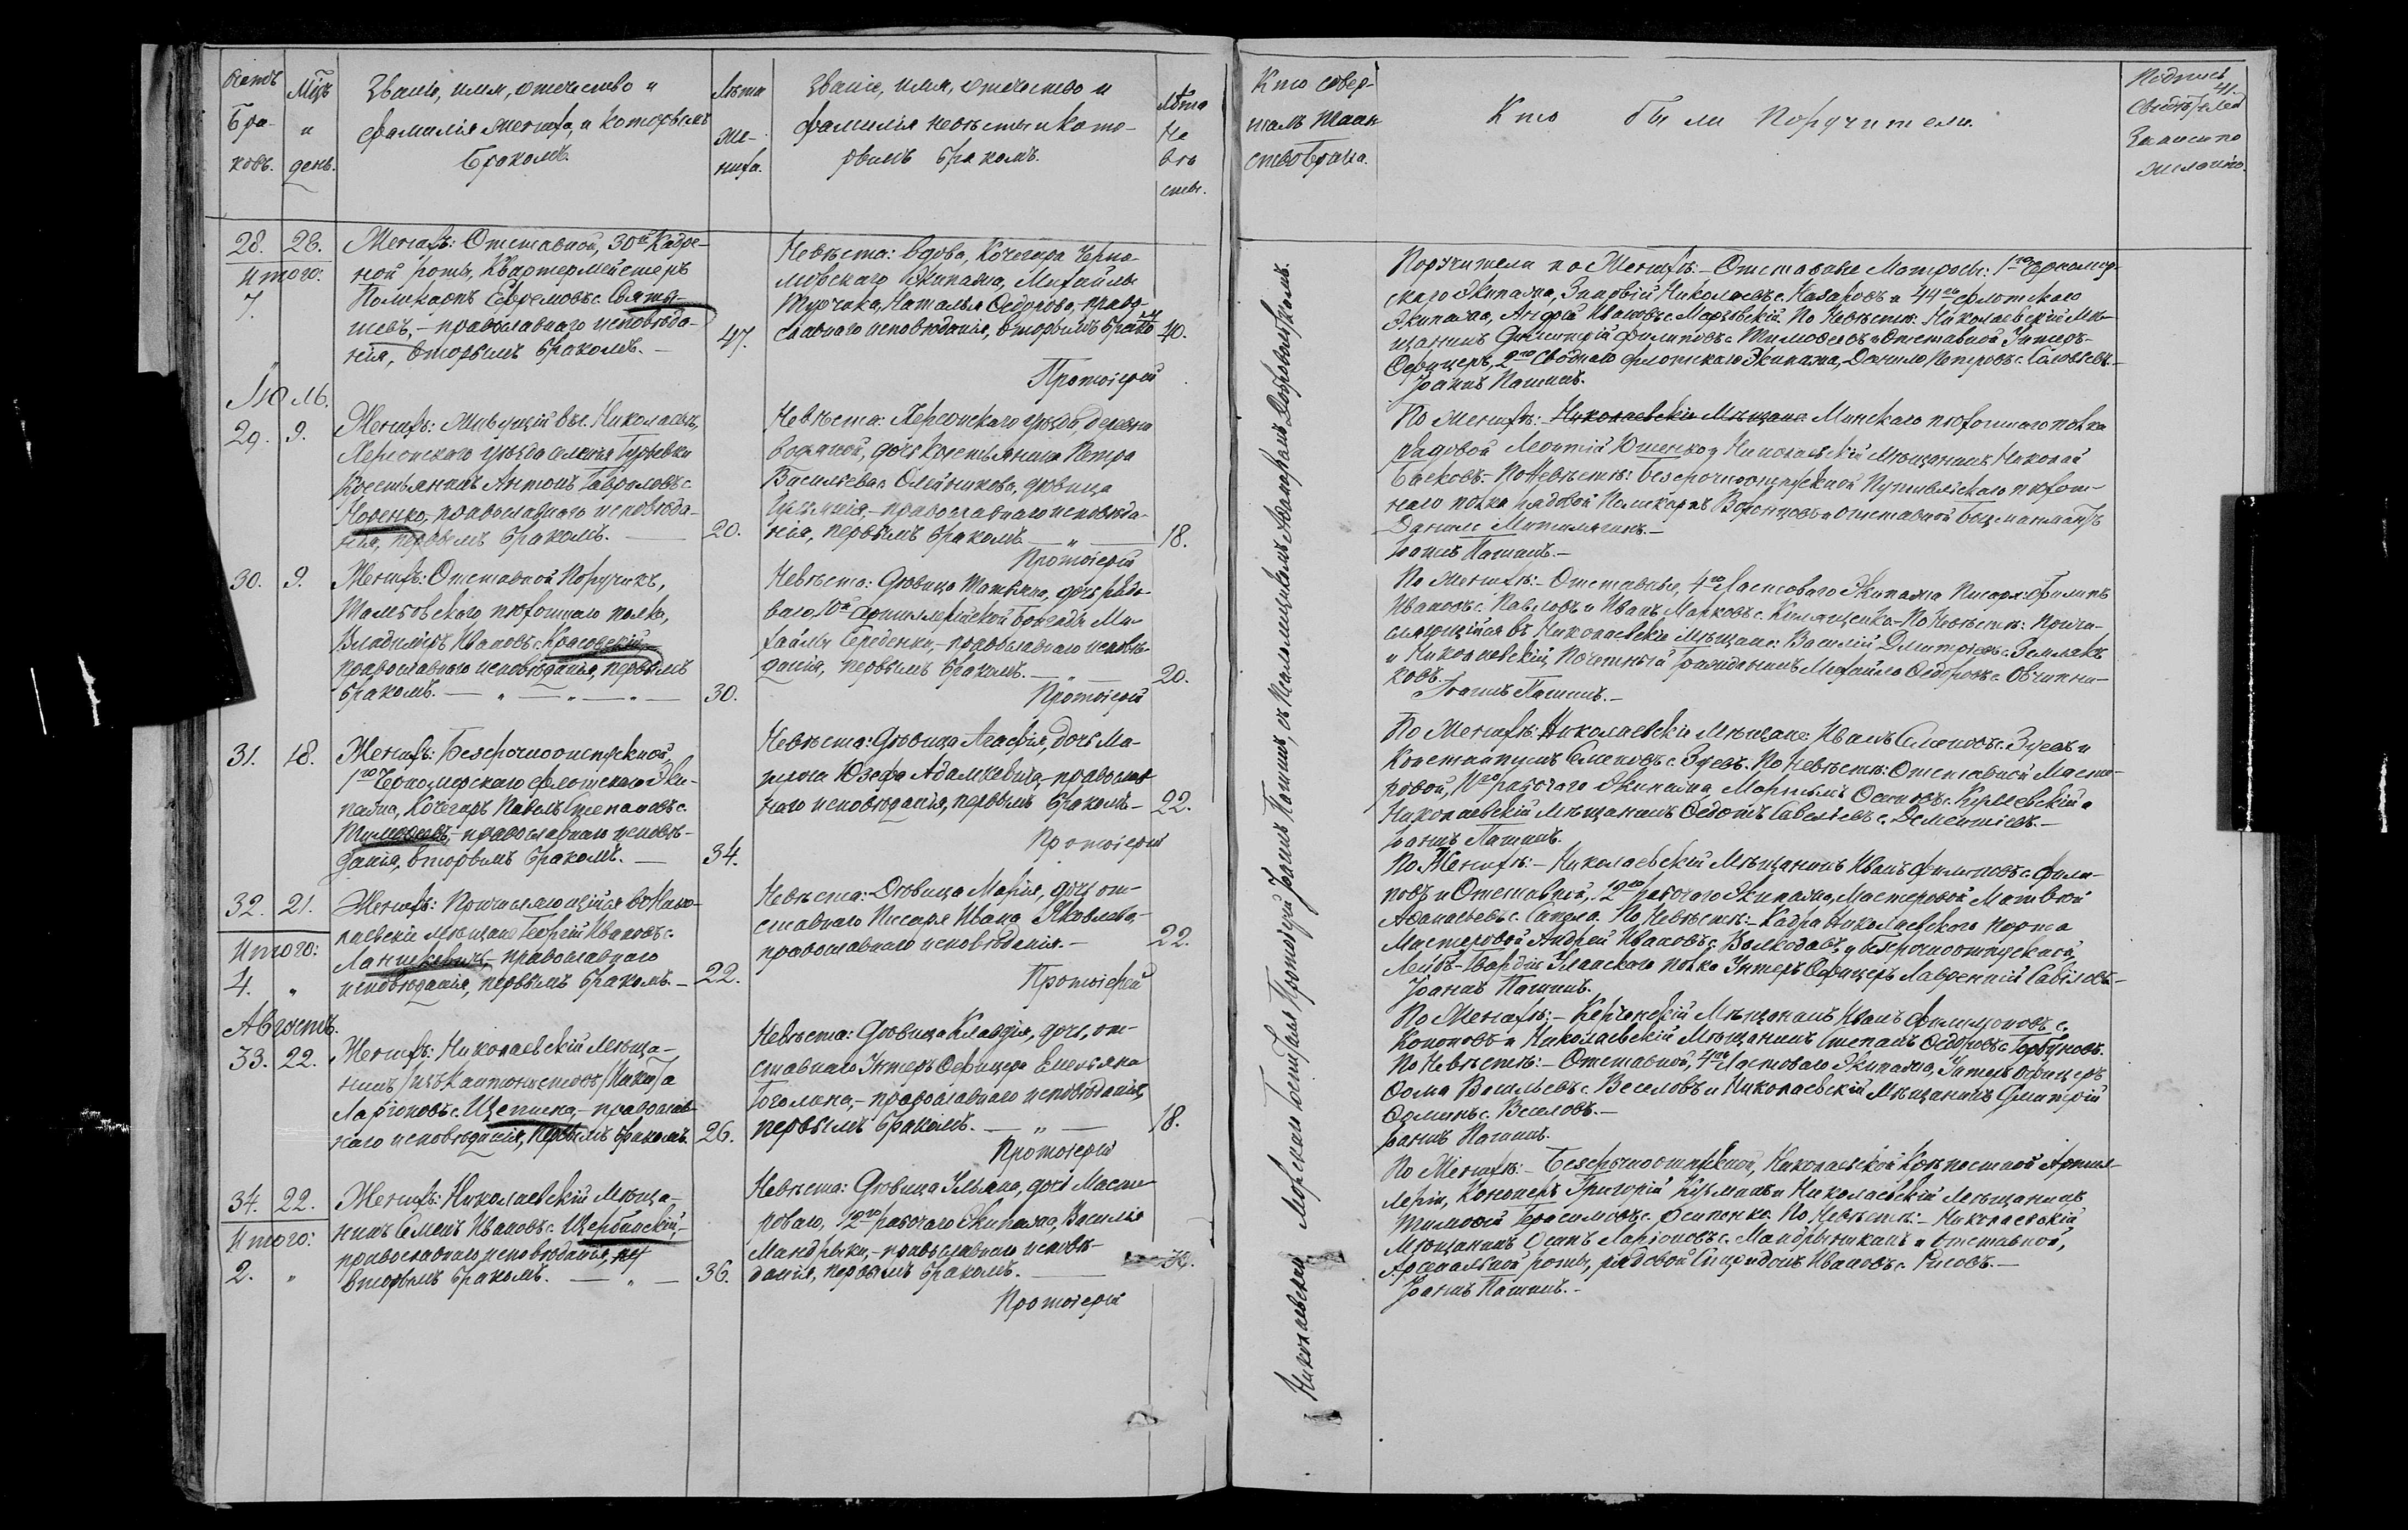 Счетъ
Бра-
ковъ.
Мцъ
и
день.
Званіе, имя, отчество и
фамилія жениха, и которымъ
бракомъ.
Лѣта
же-
ниха.
Званіе, имя, отчество и
фамилія невѣсты и кото-
рымъ бракомъ.
Лѣта
не
вѣ
сты.
Кто совер-
шалъ таин-
ство брака.
Кто были Поручители.
41.
Подпись
Свидѣтелей
записи по
желанію.
28. 28.
Итого:
7.
Женихъ: Отставной, 30й Кадре-
ной роты, Квартермейстеръ
Поликарпъ Ефремовъ с. Святы-
шевъ, – православнаго исповѣда-
нія, вторымъ бракомъ. –
47.
Невѣста: вдова, Кочегара Черно-
морскаго Экипажа, Михайлы
Турчака, Наталья Ѳедорова, право-
славнаго исповѣданія, вторымъ брако
40.
Протоіерей
Поручители по Женихѣ: – Отставные Матросы: 1го Черномор-
скаго Экипажа, Зиновій Николаевъ с. Назаровъ и 44го флотскаго
Экипажа, Андрей Ивановъ с. По Невѣстѣ: Николаевскій Мѣ-
щанинъ Димитрій Филиповъ с. Тимофеевъ и Отставной Унтеръ-
Офицеръ, 2го Своднаго флотскаго Экипажа, Данило Петровъ с. Соловьевъ. –
Іоаннъ Пашинъ.
Іюль.
29. 9.
Женихъ: живущій въ г. Николаевѣ,
Херсонскаго уѣзда селенія Гурьевки
Крестьянинъ Антонъ Гавриловъ с.
Норенко, православнаго исповѣда-
нія, первымъ бракомъ. —
20.
Невѣста: Херсонскаго уѣзда, деревни
Водяной, дочь Крестьянина Петра
Васильева с. Олейникова, дѣвица
православнаго исповѣда-
нія, первымъ бракомъ. — „ —
18.
Протоіерей
По Женихѣ: – Николаевскіе Мѣщане Минскаго пѣхотнаго полка
рядовой Леонтій Ющенко и Николаевскій Мѣщанинъ Николай
Басковъ. – По Невѣстѣ: безсрочноотпускной Путивльскаго пѣхот-
наго полка рядовой Поликарпъ Воронцовъ и отставной Боцманматъ
Данило –
Іоаннъ Пашинъ. –
30. 9.
Женихъ: Отставной Поручикъ,
Тамбовскаго пѣхотнаго полка,
Владиміръ Ивановъ с. Красовскій –
православнаго исповѣданія, первымъ
бракомъ. — „ — „ — „ —
30.
Невѣста: Дѣвица Татьяна, дочь рядо-
ваго, 10й Артиллерійской бригады Ми-
хайлы Середенки, – православнаго исповѣ-
данія, первымъ бракомъ. — „ —
20.
Протоіерей
По Женихѣ: – Отставные, 4го Ластоваго Экипажа Писаря: Филипъ
Ивановъ с. Павловъ и Иванъ Марковъ с. По Невѣстѣ: Причи-
сляющійся въ Николаевскіе Мѣщане: Василій Дмитріевъ с. Землякъ
и Николаевскій Почетный Гражданинъ Михайло Ѳедоровъ с. Овчинни-
ковъ.
Іоаннъ Пашинъ. –
31. 18.
Женихъ: Безсрочноотпускной,
1го Черноморскаго флотскаго Эки-
пажа, Кочегаръ Павелъ Степановъ с.
Тимофеевъ, – православнаго исповѣ-
данія, вторымъ бракомъ. —
34.
Невѣста: Дѣвица Агафія, дочь Ма-
троса Юзефа Адамкевича, – православ-
наго исповѣданія, первымъ бракомъ. –
22.
Протоіерей
По Женихѣ: Николаевскіе Мѣщане: Иванъ Семеновъ с. Зуевъ и
Константинъ Семеновъ с. Зуевъ. По Невѣстѣ: Отставной Масте-
ровой, 11го рабочаго Экипажа, Мартынъ Осиповъ с. и
Николаевскій Мѣщанинъ Ѳедотъ Савельевъ с. Дементіевъ. –
Іоаннъ Пашинъ.
32. 21.
Итого:
4. „
Женихъ: Причисляющійся въ Нико-
лаевскіе Мѣщане Георгій Ивановъ с.
Ланшкевичъ, – православнаго
исповѣданія, первымъ бракомъ. –
22.
Невѣста: Дѣвица Марія, дочь от-
ставнаго Писаря Ивана Яковлева, –
православнаго исповѣданія. –
22.
Протоіерей
По Женихѣ: – Николаевскій Мѣщанинъ Иванъ Филиповъ с. Фили-
повъ и Отставной, 12го рабочаго Экипажа, Мастеровой Матвей
Афанасьевъ с. Сапела. По Невѣстѣ: – Кадра Николаевскаго Порта
Мастеровой Андрей Ивановъ с. Волкодавъ и безсрочноотпускной,
Лейбъ-Гвардіи Уланскаго полка Унтеръ Офицеръ Лаврентій Савіловъ –
Іоаннъ Пашинъ.
Августъ.
33. 22.
Женихъ: Николаевскій Мѣща-
нинъ /изъ Кантонистовъ/ Никита
Ларіоновъ с. Щепина, – православ-
наго исповѣданія, первымъ бракомъ.
26.
Невѣста: Дѣвица Клавдія, дочь, от-
ставнаго Унтеръ Офицера Емельяна
Гоголина, – православнаго исповѣданія,
первымъ бракомъ. — „ —
18.
Протоіерей
По Женихѣ: – Керченскій Мѣщанинъ Иванъ Филимоновъ с.
Кононовъ и Николаевскій Мѣщанинъ Степанъ Ѳедоровъ с. Горбуновъ.
По Невѣстѣ: – Отставной, 4го Ластоваго Экипажа, Унтеръ офицеръ
Ѳома Васильевъ с. Веселовъ и Николаевскій Мѣщанинъ Дмитрій
Ѳоминъ с. Веселовъ. –
Іоаннъ Пашинъ.
34. 22.
Итого:
2. „
Женихъ: Николаевскій Мѣща-
нинъ Семенъ Ивановъ с. Щербинскій, –
православнаго исповѣданія, пер
вторымъ бракомъ. — „ —
36.
Невѣста: Дѣвица Ульяна, дочь Масте-
роваго, 12го рабочаго Экипажа, Василія
Мандрыки, – православнаго исповѣ-
данія, первымъ бракомъ. —
Протоіерей
По Женихѣ: – Безсрочноотпускной, Николаевской Крѣпостной Артил-
леріи, Канониръ Григорій Кузминъ и Николаевскій Мѣщанинъ
Тимофей Герасимовъ с. Осипенко. По Невѣстѣ: – Николаевскій
Мѣщанинъ Осипъ Ларіоновъ с. и отставной,
Арсенальной роты, рядовой Спиридонъ Ивановъ с. Рисовъ. –
Іоаннъ Пашинъ. –
Николаевскаго Морскаго Госпиталя Протоіерей Іоаннъ Пашинъ, съ Псаломщикомъ Добровольскимъ.